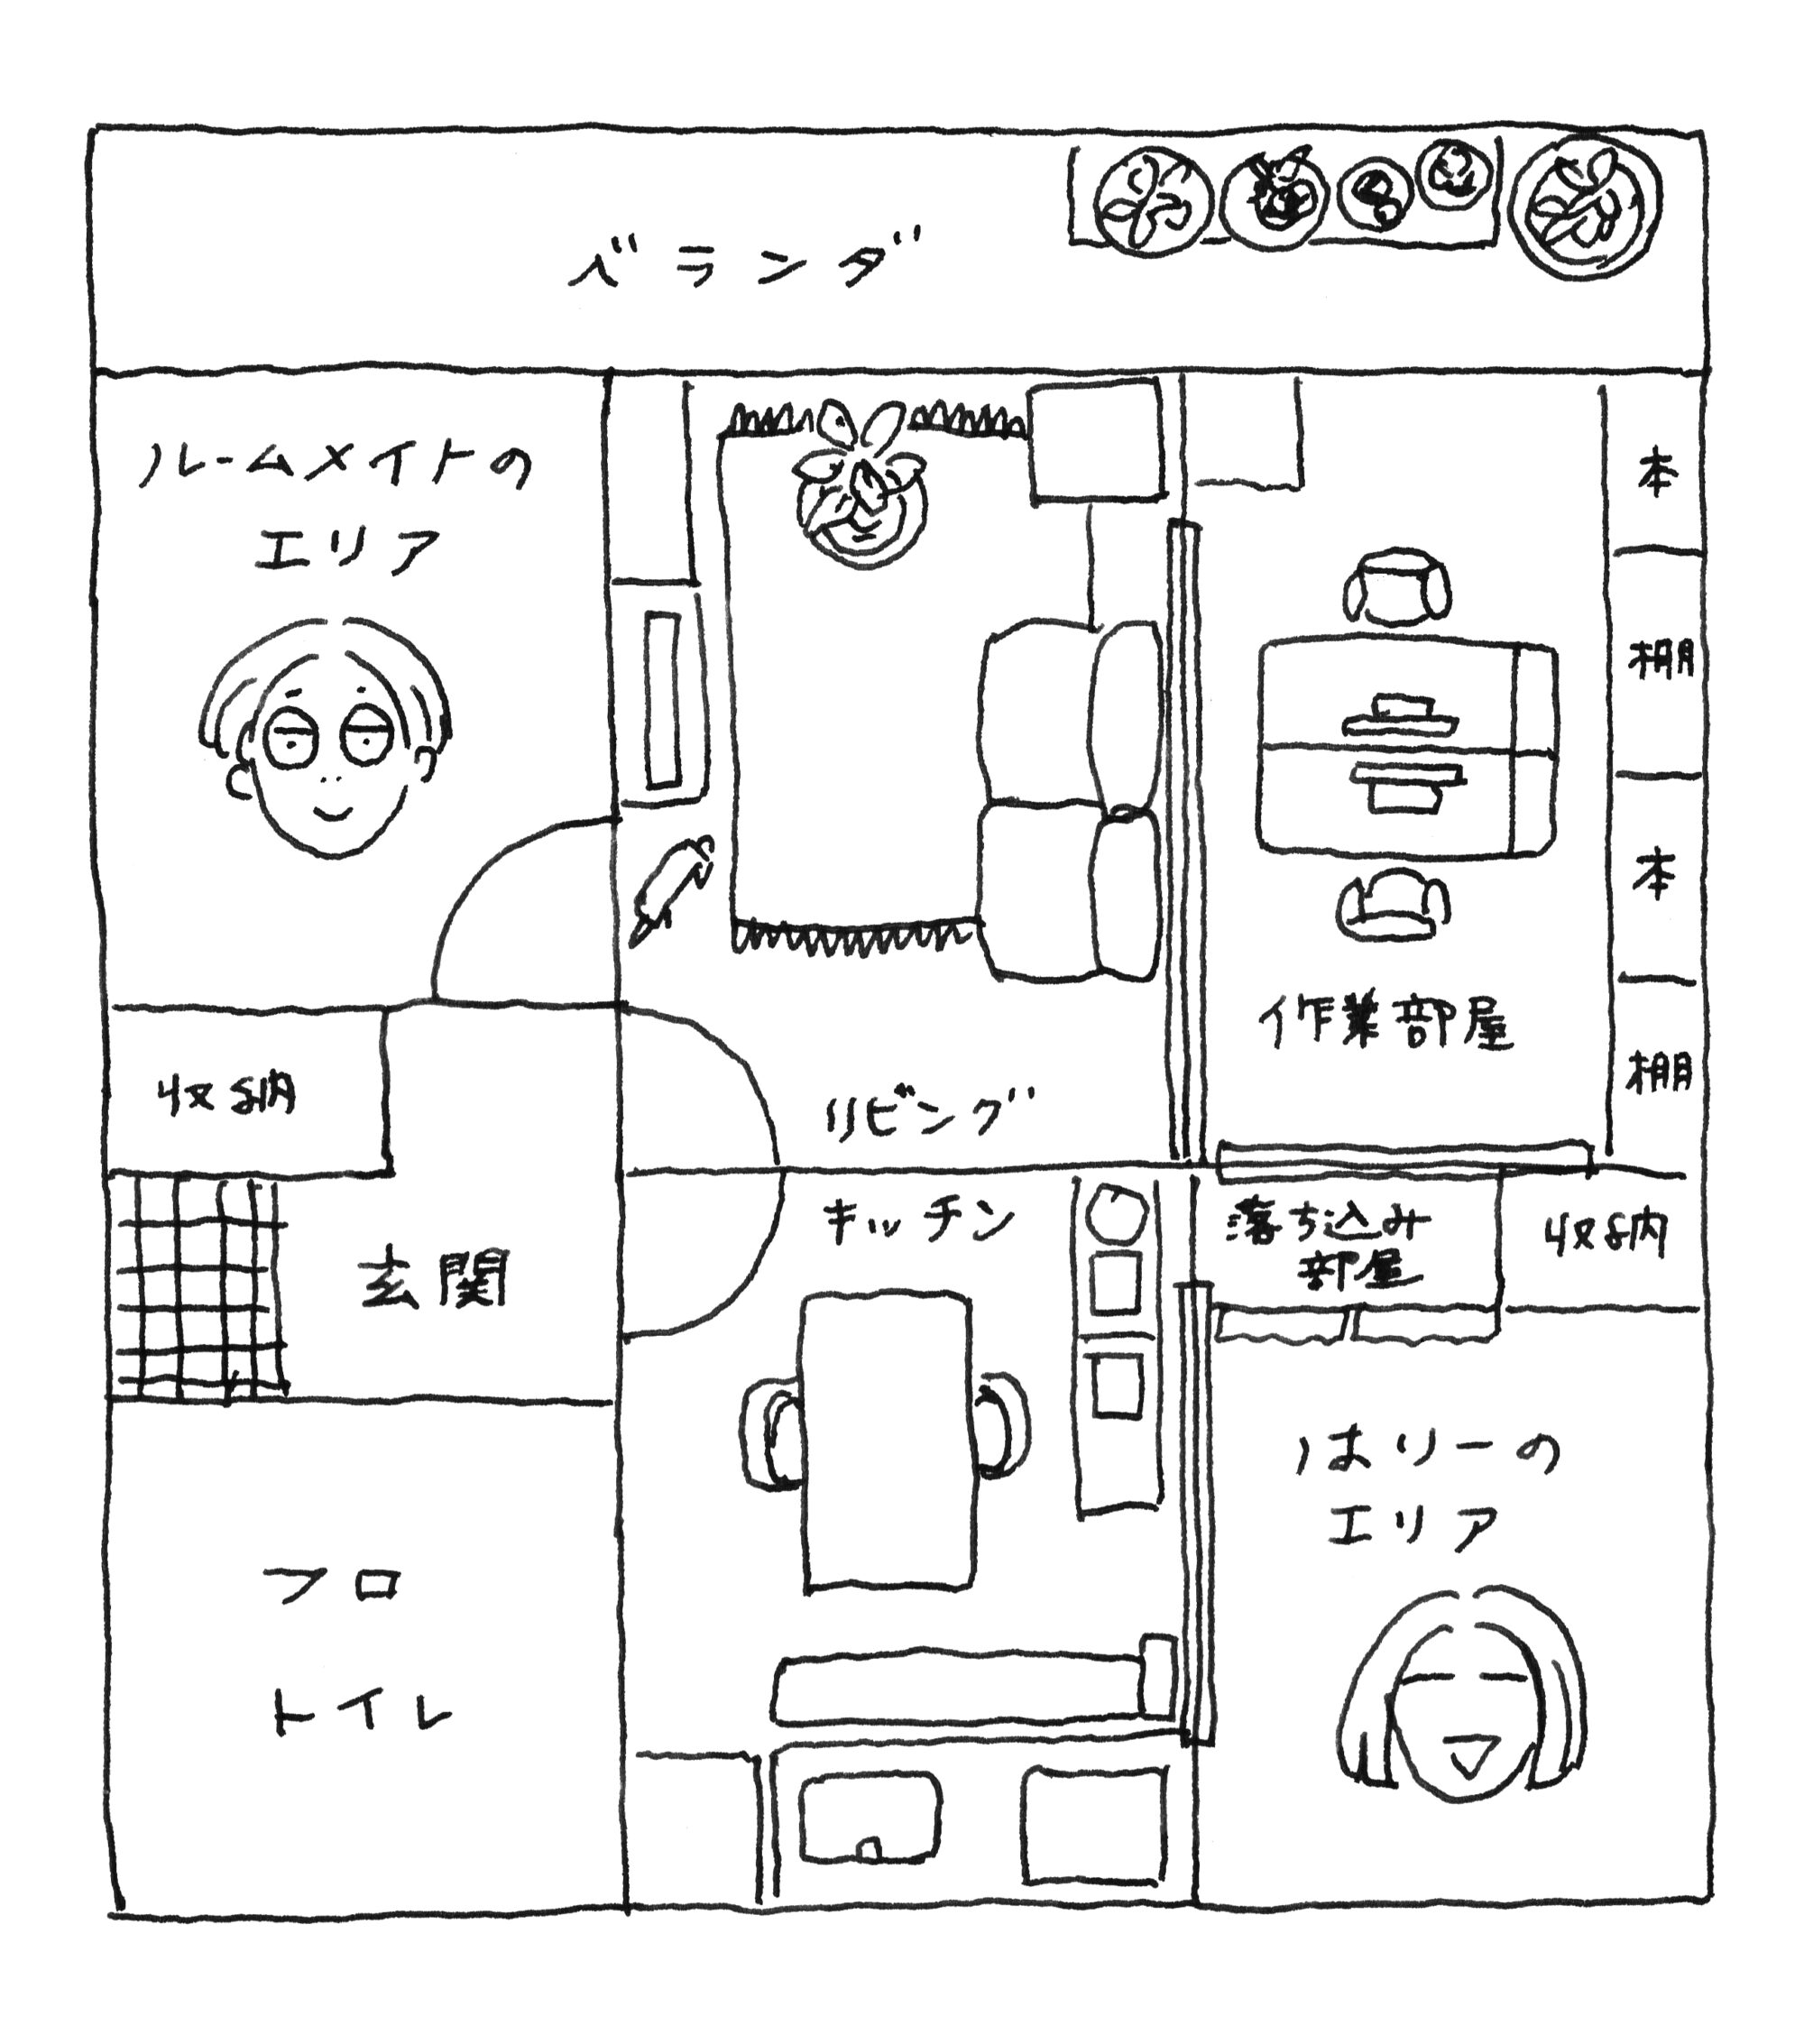 ベランダ
ルームメイトの
エリア
本
棚
本
棚
作業部屋
収納
リビング
玄関
キッチン
落ち込み
部屋
収納
はりーの
エリア
フロ
トイレ